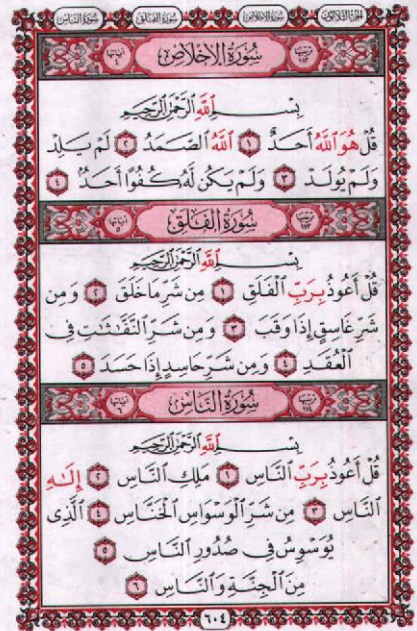 الجزء الثلاثون سورة الإخلاص سورة الفلق سورة الناس
ترتيبها ١١٢ سُورَةُ الإِخْلَاصِ آياتها ٤
بِسْمِ ٱللَّهِ ٱلرَّحْمَٰنِ ٱلرَّحِيمِ
قُلْ هُوَ ٱللَّهُ أَحَدٌ ١ ٱللَّهُ ٱلصَّمَدُ ٢ لَمْ يَلِدْ
وَلَمْ يُولَدْ ٣ وَلَمْ يَكُن لَّهُۥ كُفُوًا أَحَدٌۢ ٤
ترتيبها ١١٣ سُورَةُ الْفَلَقِ آياتها ٥
بِسْمِ ٱللَّهِ ٱلرَّحْمَٰنِ ٱلرَّحِيمِ
قُلْ أَعُوذُ بِرَبِّ ٱلْفَلَقِ ١ مِن شَرِّ مَا خَلَقَ ٢ وَمِن
شَرِّ غَاسِقٍ إِذَا وَقَبَ ٣ وَمِن شَرِّ ٱلنَّفَّٰثَٰتِ فِى
ٱلْعُقَدِ ٤ وَمِن شَرِّ حَاسِدٍ إِذَا حَسَدَ ٥
ترتيبها ١١٤ سُورَةُ النَّاسِ آياتها ٦
بِسْمِ ٱللَّهِ ٱلرَّحْمَٰنِ ٱلرَّحِيمِ
قُلْ أَعُوذُ بِرَبِّ ٱلنَّاسِ ١ مَلِكِ ٱلنَّاسِ ٢ إِلَٰهِ
ٱلنَّاسِ ٣ مِن شَرِّ ٱلْوَسْوَاسِ ٱلْخَنَّاسِ ٤ ٱلَّذِى
يُوَسْوِسُ فِى صُدُورِ ٱلنَّاسِ ٥
مِنَ ٱلْجِنَّةِ وَٱلنَّاسِ ٦
٦٠٤